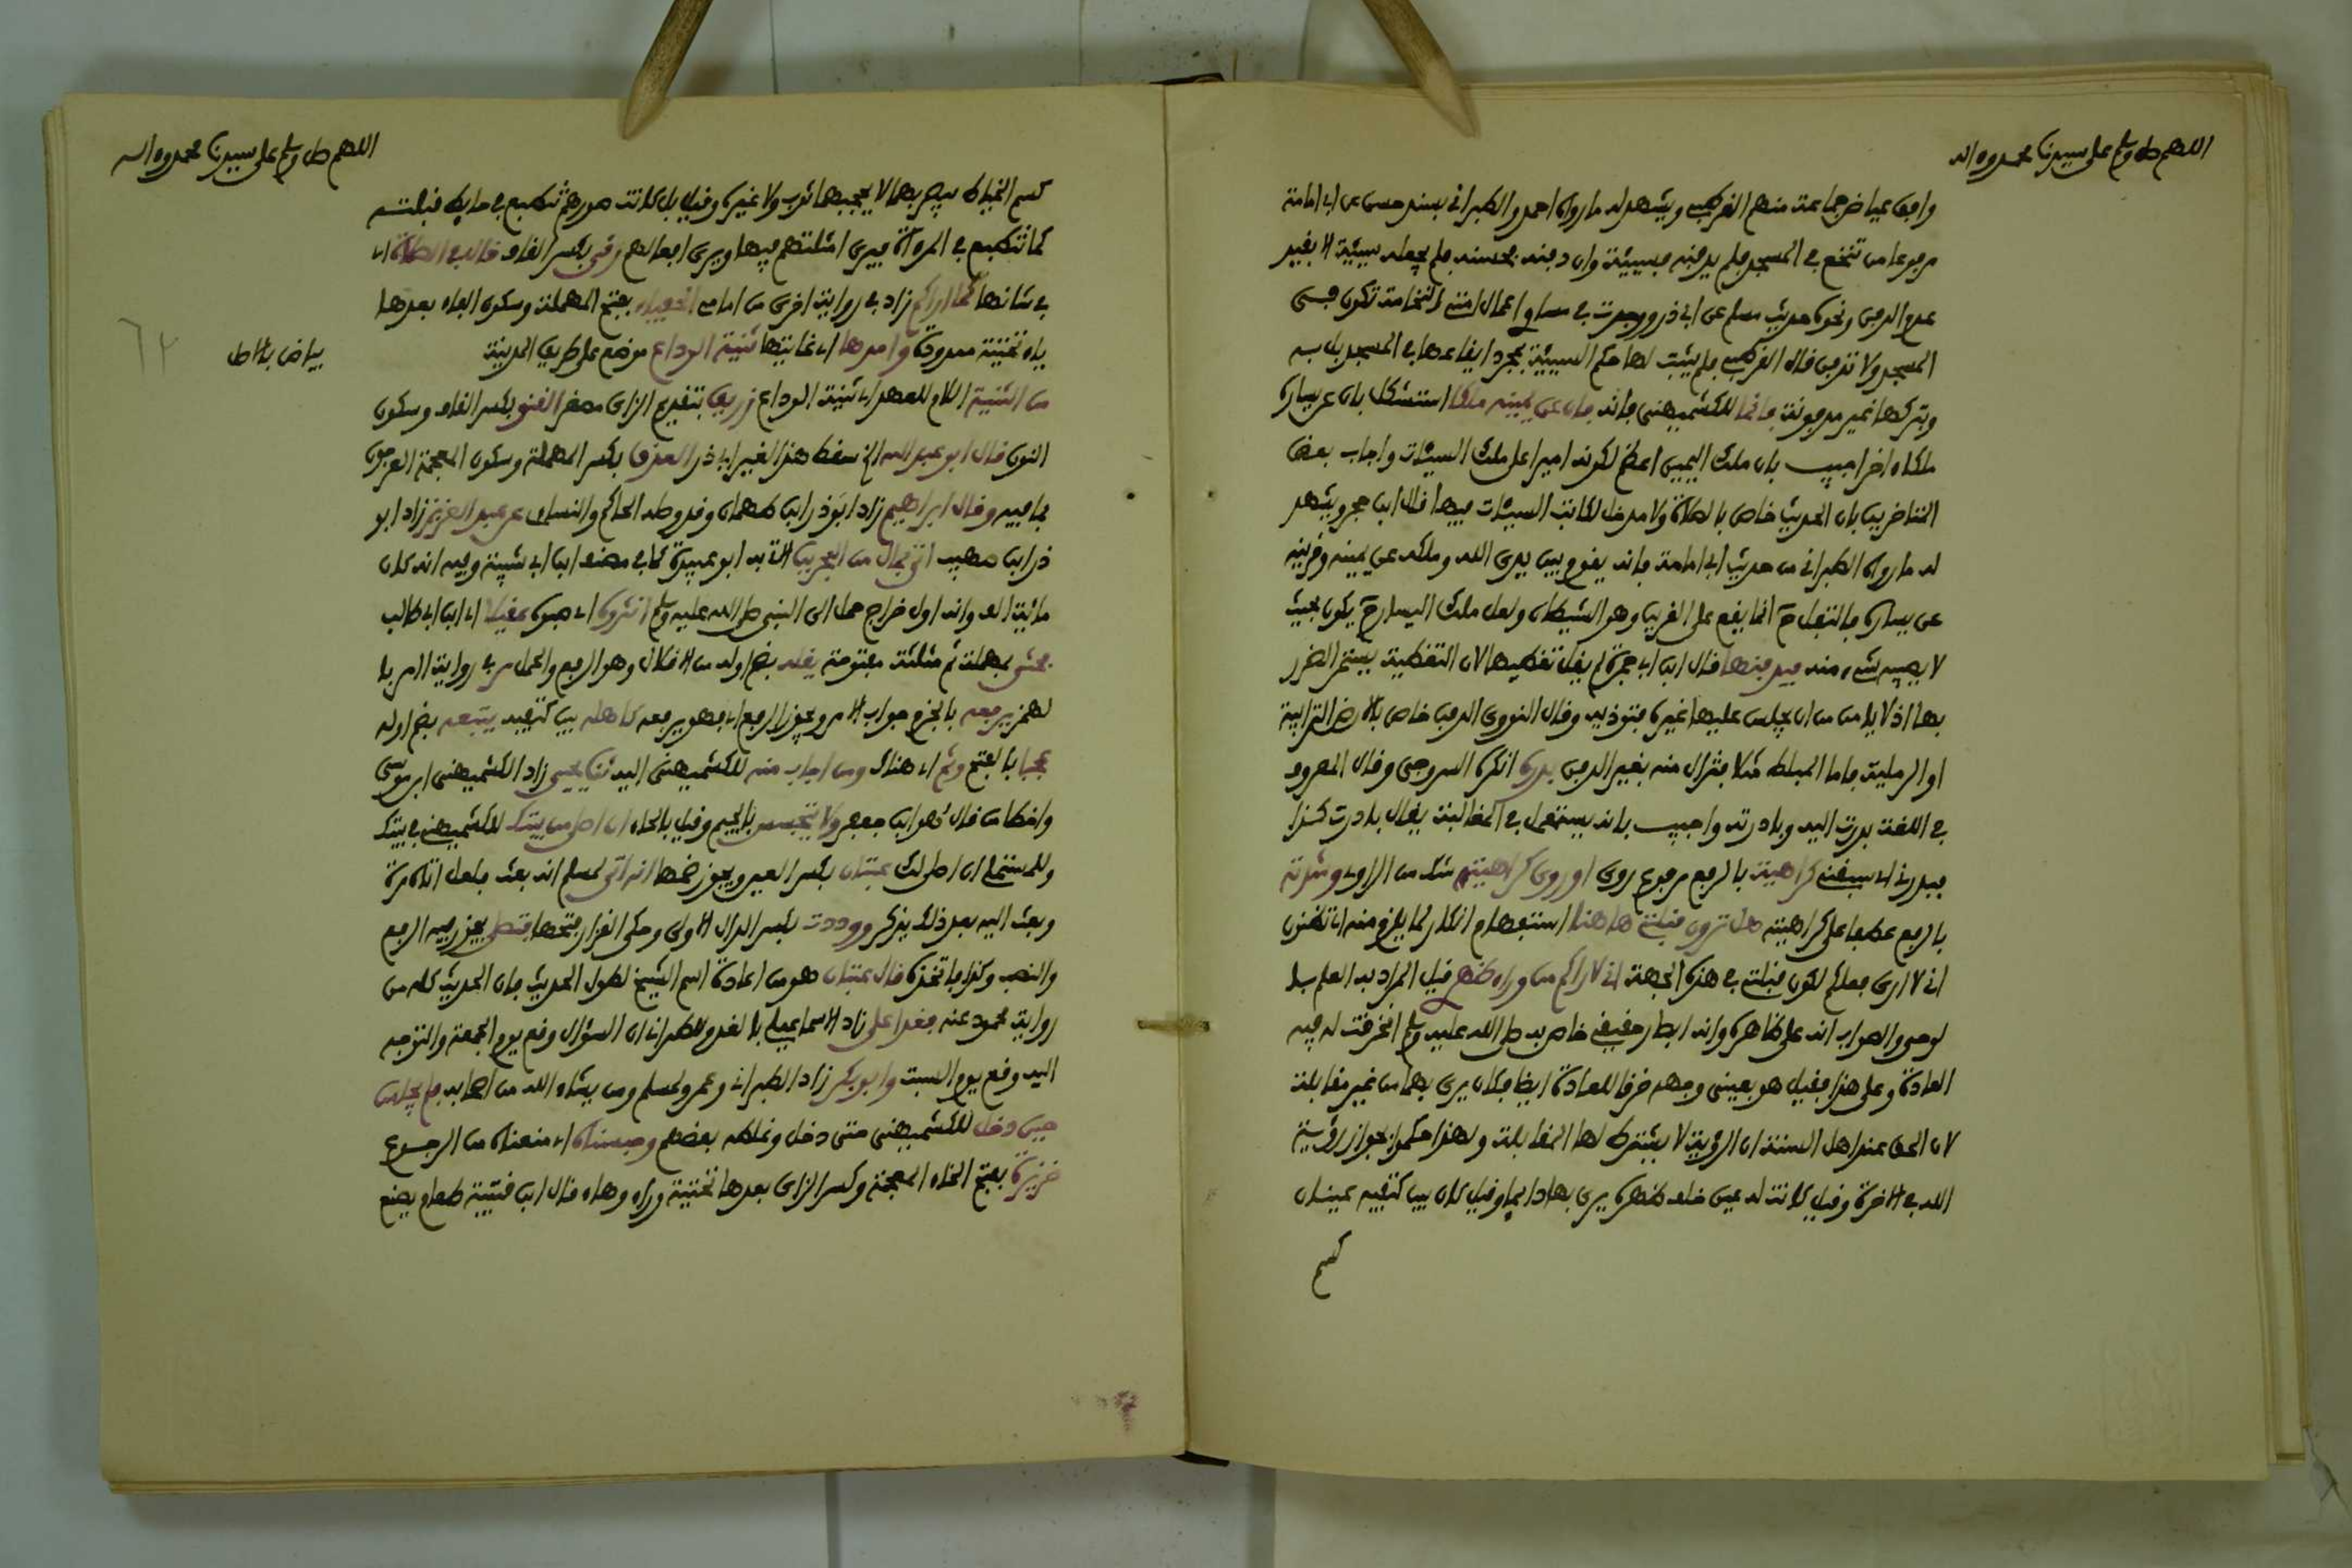 اللهم صل وسلم على سيدنا محمد وءاله
وافق عياض جماعة منهم القرطبي ويشهد له ما رواه احمد والطبراني بسند حسن عن ابي امامة
مرفوعا من تنخع في المسجد فلم يدفنه فسيئة وان دفنه فحسنة فلم يجعله سيئة الا بقيد
عدم الدفن ونحوه حديث مسلم عن ابي ذر ووجدت في مساوي اعمال امتي النخامة تكون في
المسجد ولا تدفن قال القرطبي فلم يثبت لها حكم السيئة بمجرد ايقاعها في المسجد بل به
وبتركها غير مدفونة فانما للكشميهني فانه فان عن يمينه ملكا استشكل بان عن يساره
ملكا ءاخر اجيب بان ملك اليمين اعظم لكونه اميرا على ملك السيئات واجاب بعض
المتاخرين بان الحديث خاص بالصلاة ولا مدخل لكاتب السيئات فيها قال ابن حجر ويشهد
له ما رواه الطبراني من حديث ابي امامة فانه يقوم بين يدي الله وملكه عن يمينه وقرينه
عن يساره فالتفل ح انما يقع على القرين وهو الشيطان ولعل ملك اليسار ح يكون بحيث
لا يصيبه شيء منه فيدفنها قال ابن ابي جمرة لم يقل تغطيها لان التغطية يستمر الضرر
بها اذ لا يامن من ان يجلس عليها غيره فتوذيه وقال النووي الدفن خاص بالارض الترابية
او الرملية فاما المبلطة مثلا فتزال منه بغير الدفن بدره انكره السروجي وقال المعروف
في اللغة بدرت اليه وبادرته واجيب بانه يستعمل في المغالبة يقال بادرت كذا
فبدرني اي سبقني كراهية بالرفع مرفوع روي او روي كراهيته شك من الراوي وشدته
بالرفع عطفا على كراهيته هل ترون قبلتي هاهنا استفهام انكار لما يلزم منه اي تظنون
اني لا ارى فعلكم لكون قبلتي في هذه الجهة اني لاراكم من وراء ظهري قيل المراد به العلم بها
لوحي والصواب انه على ظاهره وانه ابصار حقيقي خاص به صلى الله عليه وسلم انخرقت له فيه
العادة وعلى هذا فقيل هو بعيني وجهه خرقا للعادة ايضا فكان يرى بهما من غير مقابلة
لان الحق عند اهل السنة ان الرؤية لا يشترط لها المقابلة ولهذا حكموا بجواز رؤية
الله في الاخرة وقيل كانت له عين خلف ظهره يرى بها دايما وقيل كان بين كتفيه عينان
كسم
اللهم صل وسلم على سيدنا محمد وءاله
كسم الخياط يبصر بهما لا يحجبهما ثوب ولا غيره وقيل بل كانت صورهم تنطبع في حايط قبلته
كما تنطبع في المرءاة فيرى امثلتهم فيها ويرى افعالهم رقي بكسر القاف قال في الصلاة اي
في شانها كما اراكم زاد في رواية اخرى من امامي الحفياء بفتح المهملة وسكون الفاء بعدها
ياء تحتية ممدودة وامدها اي غايتها ثنية الوداع موضع على طريق المدينة
بياض بالاصل
من الثنية اللام للعهد اي ثنية الوداع زريق بتقديم الزاي مصغر القنو بكسر القاف وسكون
النون قال ابو عبد الله الخ سقط هذا لغير ابي ذر العذق بكسر المهملة وسكون المعجمة العرجون
بما فيه وقال ابراهيم زاد ابو ذر ابن طهمان وقد وصله الحاكم والنساءي عن عبد العزيز زاد ابو
ذر ابن صهيب اتي بمال من البحرين الاتي به ابو عبيدة كما في مصنف ابن ابي شيبة وفيه انه كان
مائة الف وانه اول خراج حمل الى النبي صلى الله عليه وسلم انثروه اي صبوه عقيلا اي ابن ابي طالب
فحثى بمهملة ثم مثلثة مفتوحة يقله بضم اوله من الاقلال وهو الرفع والحمل مر في رواية اامر بالـ
لهمز يرفعه بالجزم جواب الامر ويجوز الرفع اي فهو يرفعه كاهله بين كتفيه يتبعه بضم اوله
عجبا بالفتح وثم اي هناك ومن اجاب منه للكشميهني اليه ثنا يحيى زاد الكشميهني ابن موسى
واخطا من قال هو ابن جعفر ولا تجسس بالجيم وقيل بالحاء ان اصلي من بيتك للكشميهني في بيتك
وللمستملي ان اصلي لك عتبان بكسر العين ويجوز ضمها انه اتى لمسلم انه بعث فلعله اتاه مرة
وبعث اليه بعد ذلك يذكر ووددت بكسر الدال الاولى وحكى القزاز فتحها فتصلي يجوز فيه الرفع
والنصب وكذا فاتخذه قال عتبان هو من اعادة اسم الشيخ لطول الحديث فان الحديث كله من
رواية محمود عنه فغدا علي زاد الاسماعيلي بالغد وللطبراني ان السؤال وقع يوم الجمعة والتوجه
اليه وقع يوم السبت وابو بكر زاد الطبراني وعمر ولمسلم ومن يشاء الله من اصحابه فلم يجلس
حين دخل للكشميهني حتى دخل وغلطه بعضهم وحبسناه اي منعناه من الرجوع
خزيرة بفتح الخاء المعجمة وكسر الزاي بعدها تحتية وراء وهاء قال ابن قتيبة طعام يصنع